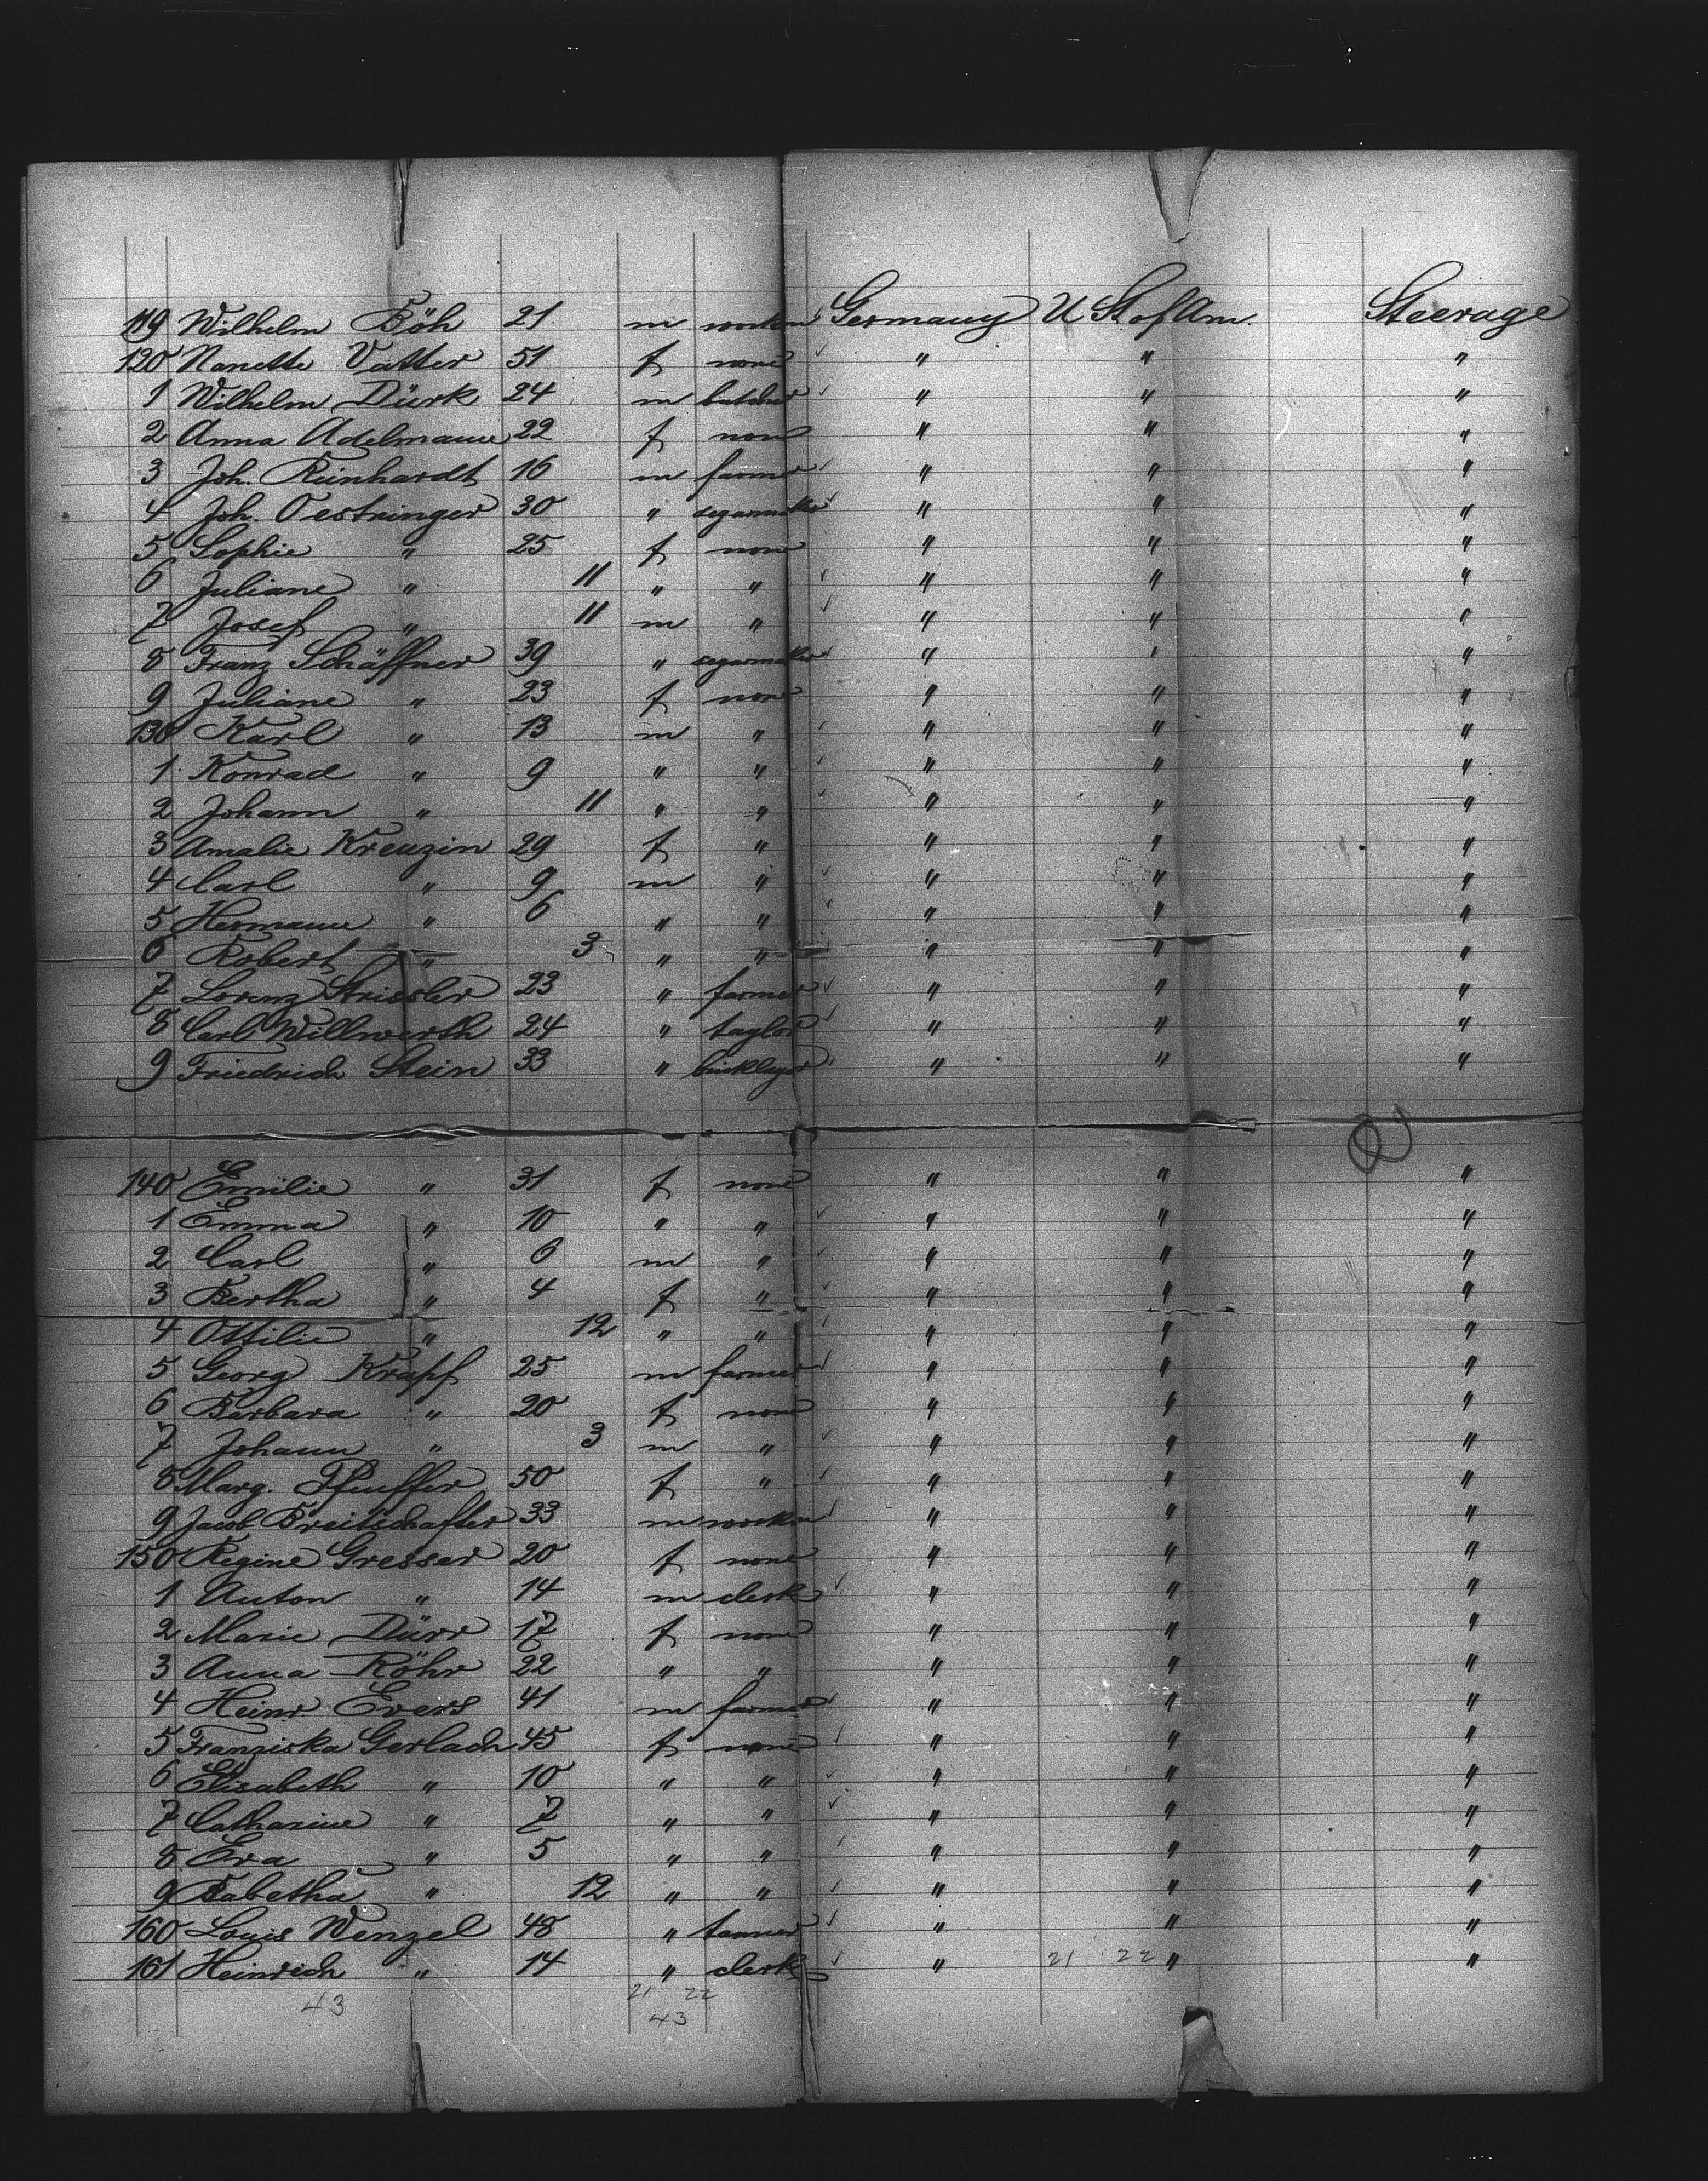 119 Wilhelm Böh 21 m workm Germany U St of Am. Steerage
120 Nanette Vatter 51 f none " " "
1 Wilhelm Dürk 24 m butcher " " "
2 Anna Adelmann 22 f none " " "
3 Joh. Reinhardt 16 m farmer " " "
4 Joh. Oestringer 30 " segarmaker " " "
5 Sophie " 25 f none " " "
6 Juliane " 11 " " " " "
7 Josef " 11 m " " " "
8 Franz Schäffner 39 " segarmaker " " "
9 Juliane " 23 f none " " "
130 Karl " 13 m " " " "
1 Konrad " 9 " " " " "
2 Johann " 11 " " " " "
3 Amalie Kreuzin 29 f " " " "
4 Carl " 9 m " " " "
5 Hermann " 6 " " " " "
6 Robert " 3 " " " " "
7 Lorenz Strissler 23 " farmer " " "
8 Carl Willwerth 24 " taylor " " "
9 Friedrich Stein 33 " bricklayer " " "
140 Emilie " 31 f none " " "
1 Emma " 10 " " " " "
2 Carl " 6 m " " " "
3 Bertha " 4 f " " " "
4 Ottilie " 12 " " " " "
5 Georg Krapf 25 m farmer " " "
6 Barbara " 20 f none " " "
7 Johann " 3 m " " " "
8 Marg. Pfeuffer 50 f " " " "
9 Jacob Breitschafter 33 m workm " " "
150 Regine Gresser 20 f none " " "
1 Anton " 14 m clerk " " "
2 Marie Dürr 17 f none " " "
3 Anna Röhr 22 " " " " "
4 Heinr. Evers 41 m farmer " " "
5 Franziska Gerlach 45 f none " " "
6 Elisabeth " 10 " " " " "
7 Catharine " 7 " " " " "
8 Eva " 5 " " " " "
9 Babetha " 12 " " " " "
160 Louis Wenzel 48 " tanner " " "
161 Heinrich " 14 " clerk " 21 22 " "
43 21 22
43